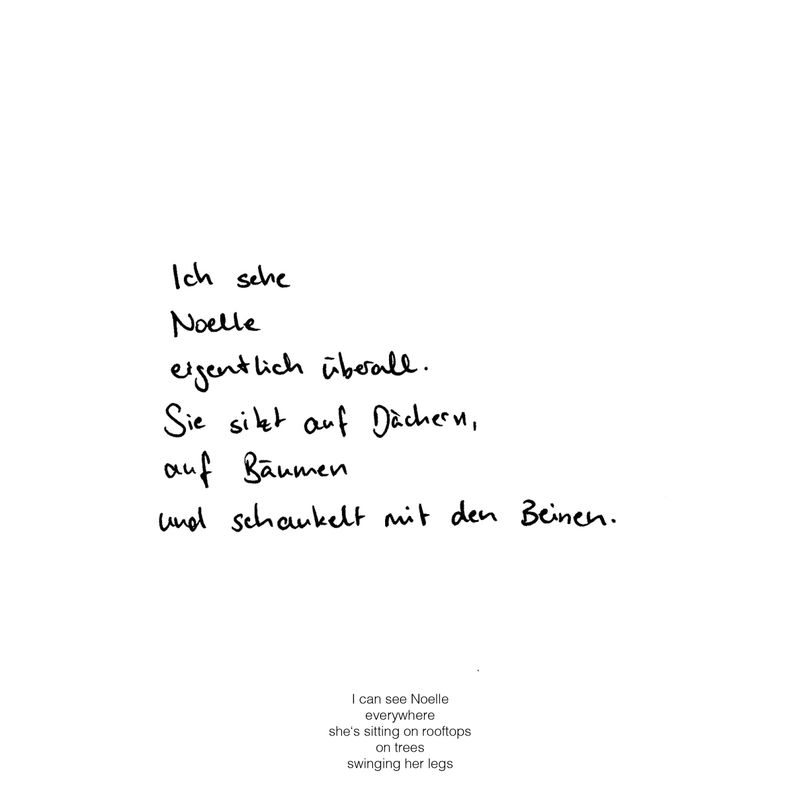 Ich sehe
Noelle
eigentlich überall.
Sie sitzt auf Dächern,
auf Bäumen
und schaukelt mit den Beinen.
I can see Noelle
everywhere
she's sitting on rooftops
on trees
swinging her legs